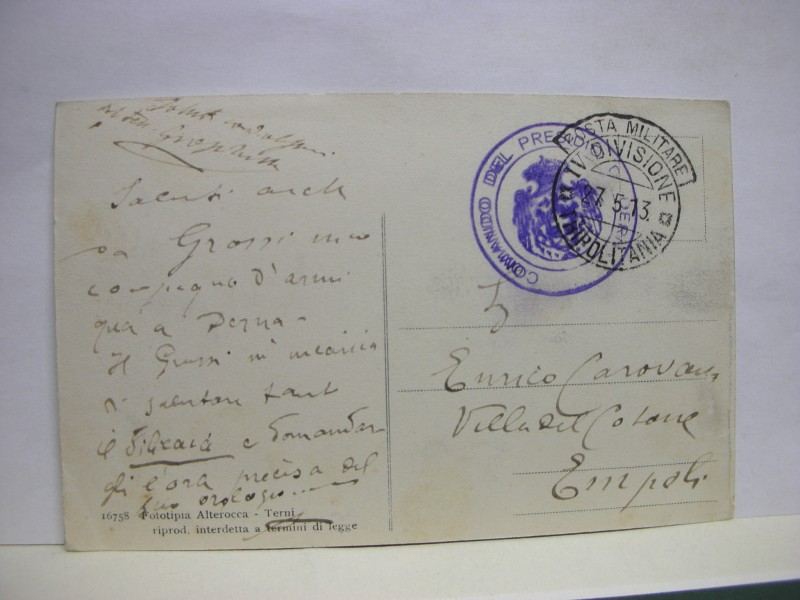 Saluti anch
da Grossi mio
compagno d'armi
qua a Derna -
Il Grossi mi incarica
di salutare tant
e domandar
gli l'ora precisa del
suo orologio
16758 Fototipia Alterocca - Terni
riprod. interdetta a termini di legge
COMANDO DEL PRESIDIO
POSTA MILITARE
IV DIVISIONE
27.5.13.
TRIPOLITANIA
Enrico Carovani
Villa del Cotone
Empoli